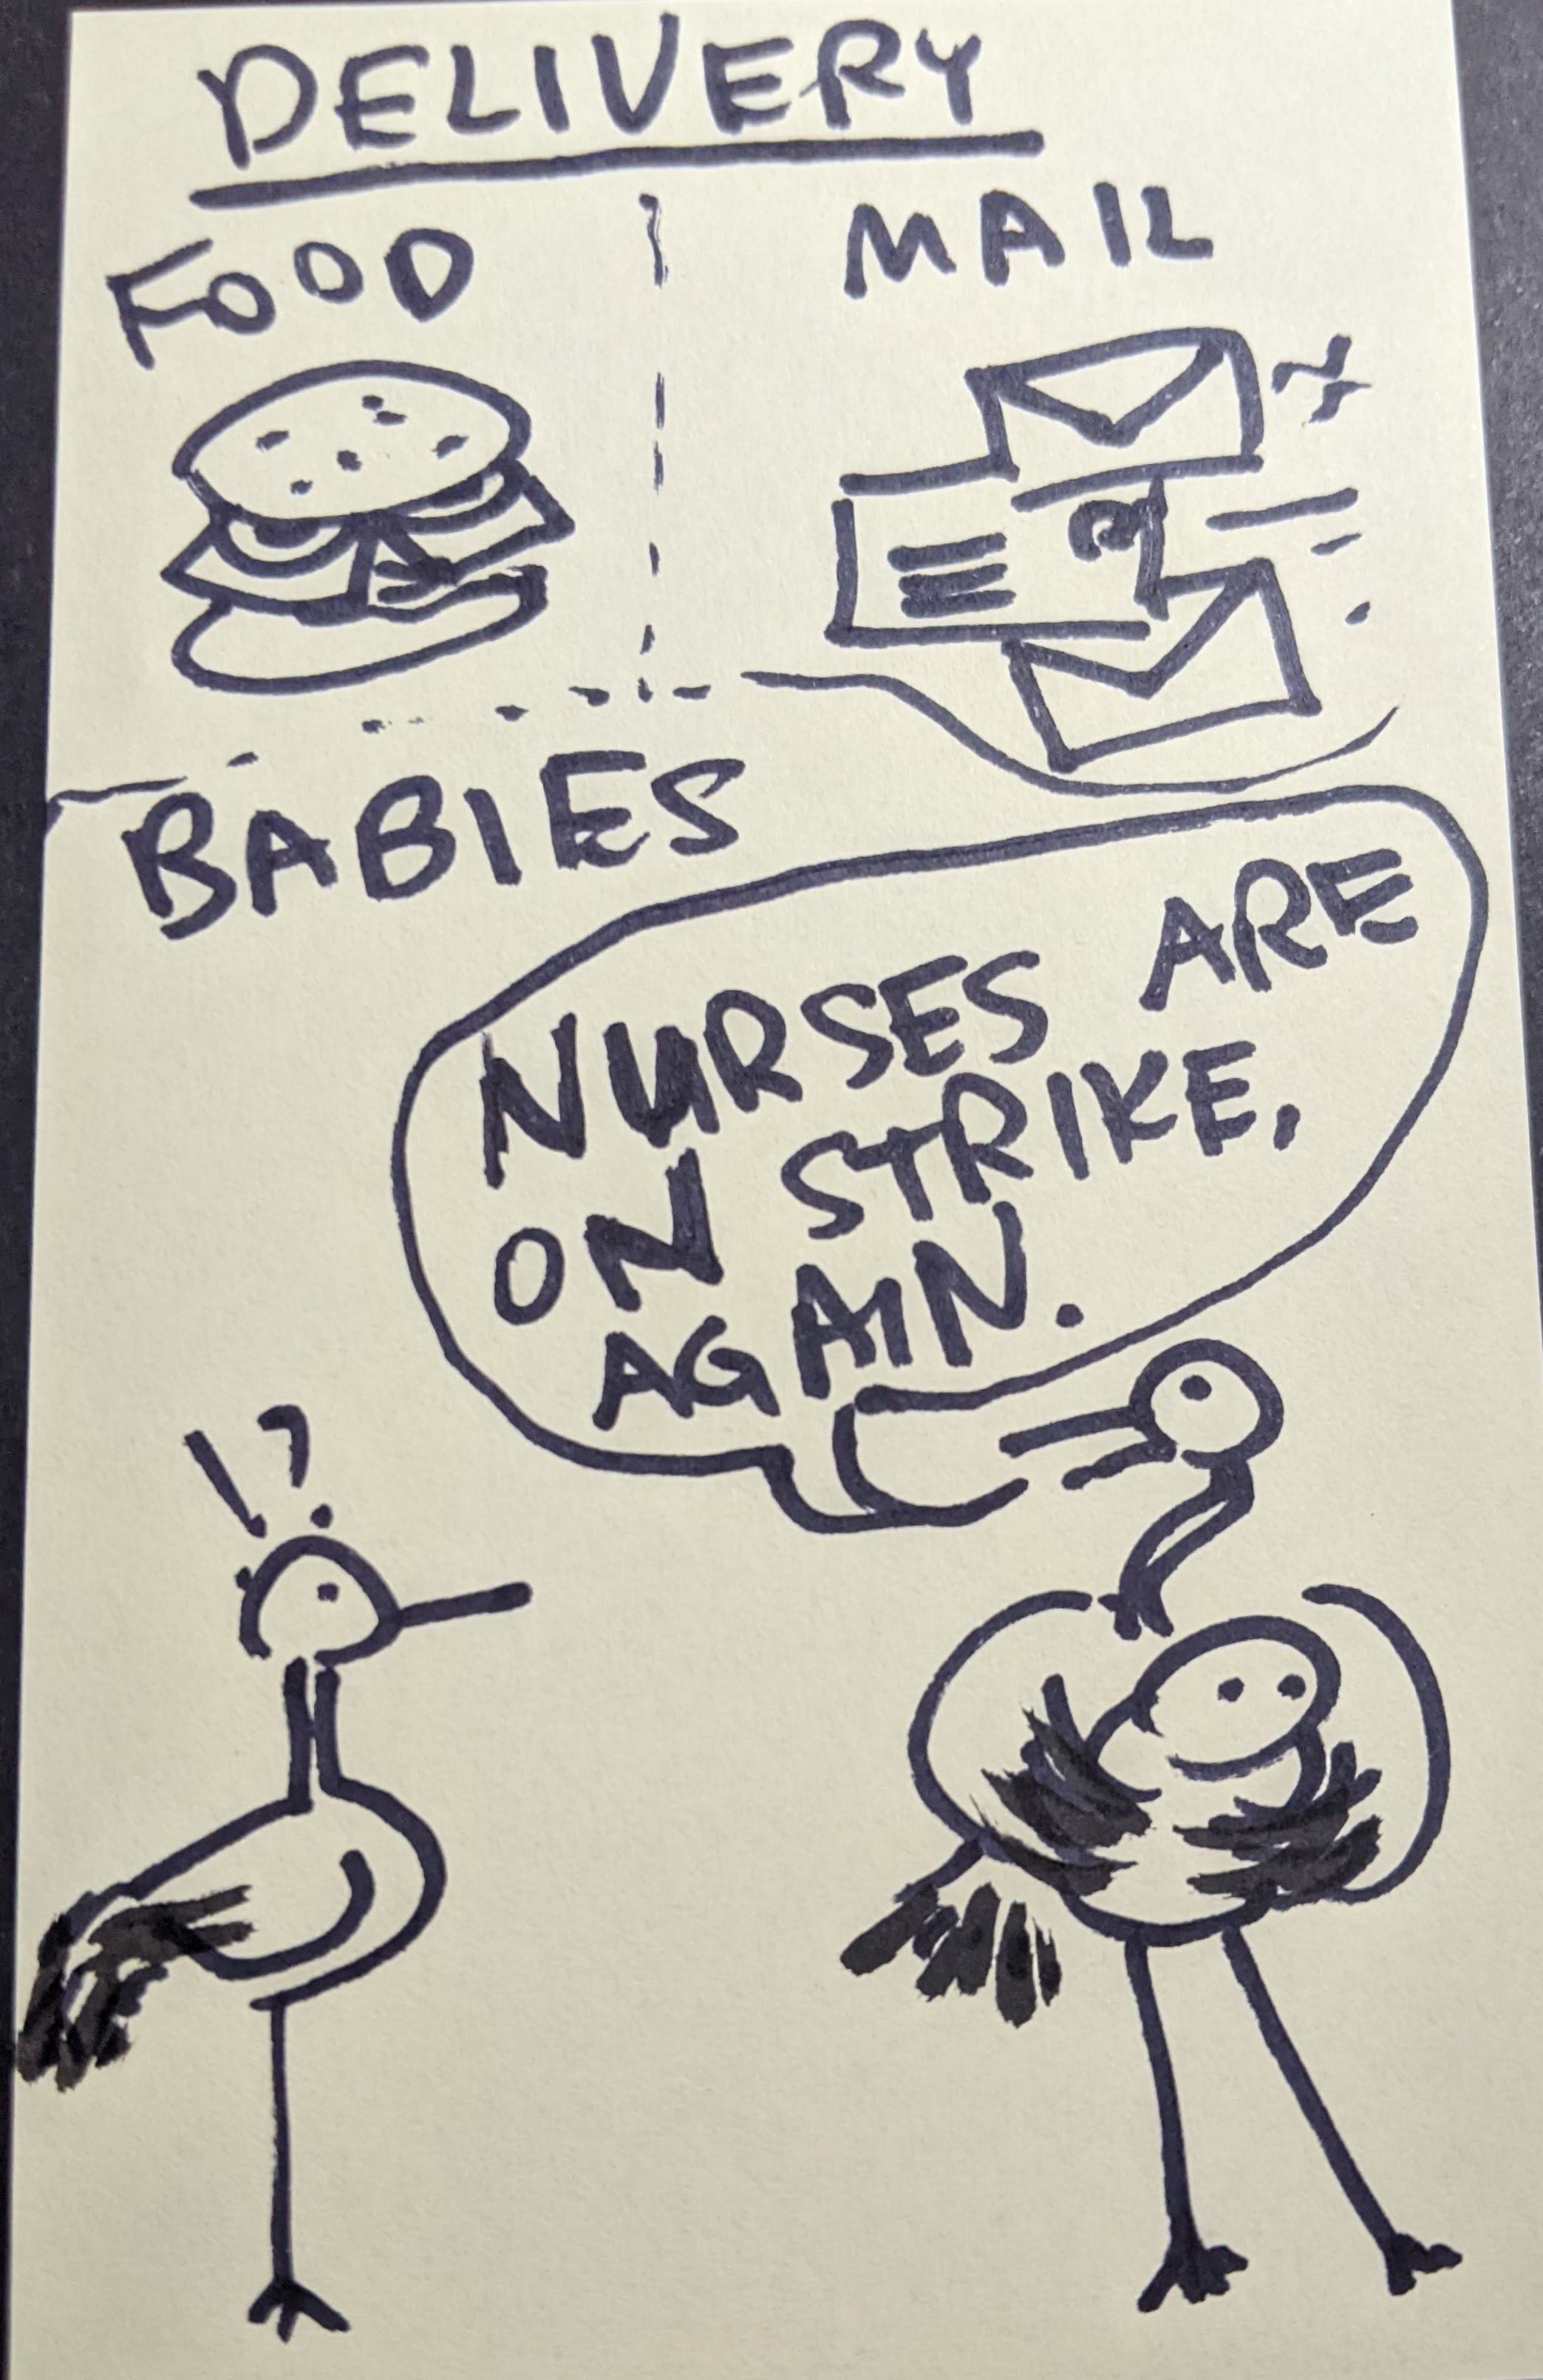 DELIVERY
FOOD
MAIL
BABIES
NURSES ARE
ON STRIKE.
AGAIN.
!?